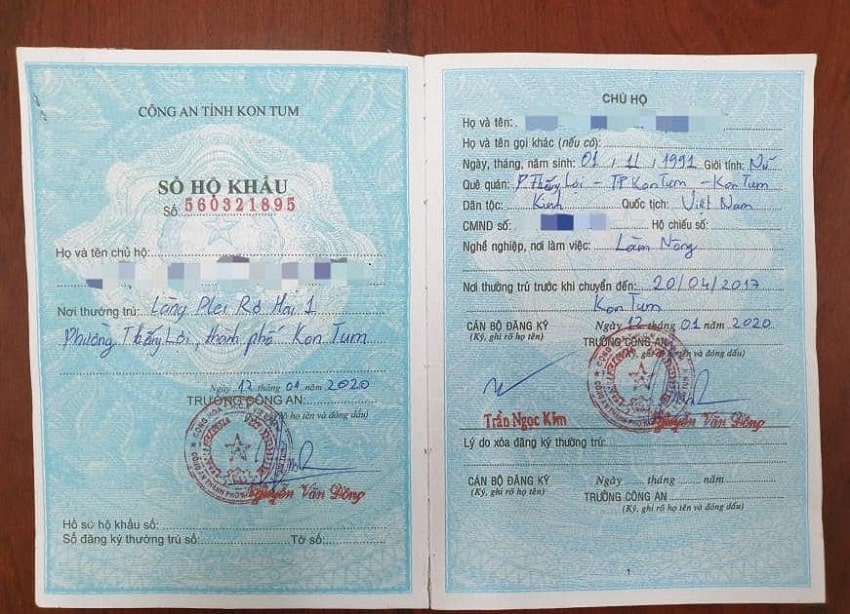 CÔNG AN TỈNH KON TUM
SỔ HỘ KHẨU
Số: 560321895
Họ và tên chủ hộ:
Nơi thường trú: Làng Plei Rơ Hai 1
Phường Thắng Lợi, thành phố Kon Tum
Ngày 12 tháng 01 năm 2020
TRƯỞNG CÔNG AN:
(Ký, ghi rõ họ tên và đóng dấu)
Nguyễn Văn Đông
Hồ sơ hộ khẩu số:
Sổ đăng ký thường trú số: Tờ số:
CHỦ HỘ
Họ và tên:
Họ và tên gọi khác (nếu có):
Ngày, tháng, năm sinh: 01 / 11 / 1991 Giới tính: Nữ
Quê quán: P. Thắng Lợi - TP Kon Tum - Kon Tum
Dân tộc: Kinh Quốc tịch: Việt Nam
CMND số: Hộ chiếu số:
Nghề nghiệp, nơi làm việc: Làm Nông
Nơi thường trú trước khi chuyển đến: 20/04/2017
Kon Tum
CÁN BỘ ĐĂNG KÝ Ngày 12 tháng 01 năm 2020
(Ký, ghi rõ họ tên) TRƯỞNG CÔNG AN
(Ký, ghi rõ họ tên và đóng dấu)
Trần Ngọc Kim Nguyễn Văn Đông
Lý do xóa đăng ký thường trú:
CÁN BỘ ĐĂNG KÝ Ngày tháng năm
(Ký, ghi rõ họ tên) TRƯỞNG CÔNG AN
(Ký, ghi rõ họ tên và đóng dấu)
1